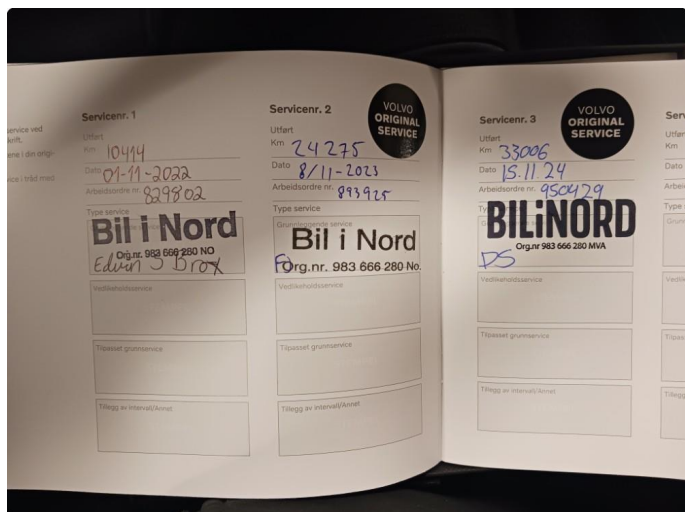 service ved
skrift.
ene i din origi-
vice i tråd med
Servicenr. 1
Utført
Km 10414
Dato 01-11-2022
Arbeidsordre nr. 829802
Type service
Bil i Nord
Org.nr. 983 666 280 NO
Edvin S Brox
Vedlikeholdsservice
Tilpasset grunnservice
Tillegg av intervall/Annet
Servicenr. 2
VOLVO
ORIGINAL
SERVICE
Utført
Km 24275
Dato 8/11-2023
Arbeidsordre nr. 893925
Type service
Grunnleggende service
Bil i Nord
Org.nr. 983 666 280 No.
Vedlikeholdsservice
Tilpasset grunnservice
Tillegg av intervall/Annet
Servicenr. 3
VOLVO
ORIGINAL
SERVICE
Utført
Km 33006
Dato 15.11.24
Arbeidsordre nr. 950429
Type service
BILiNORD
Org.nr 983 666 280 MVA
DS
Vedlikeholdsservice
Tilpasset grunnservice
Tillegg av intervall/Annet
Ser
Utført
Km
Dato
Arbeid
Type
Grun
Vedlik
Tilpas
Tilleg